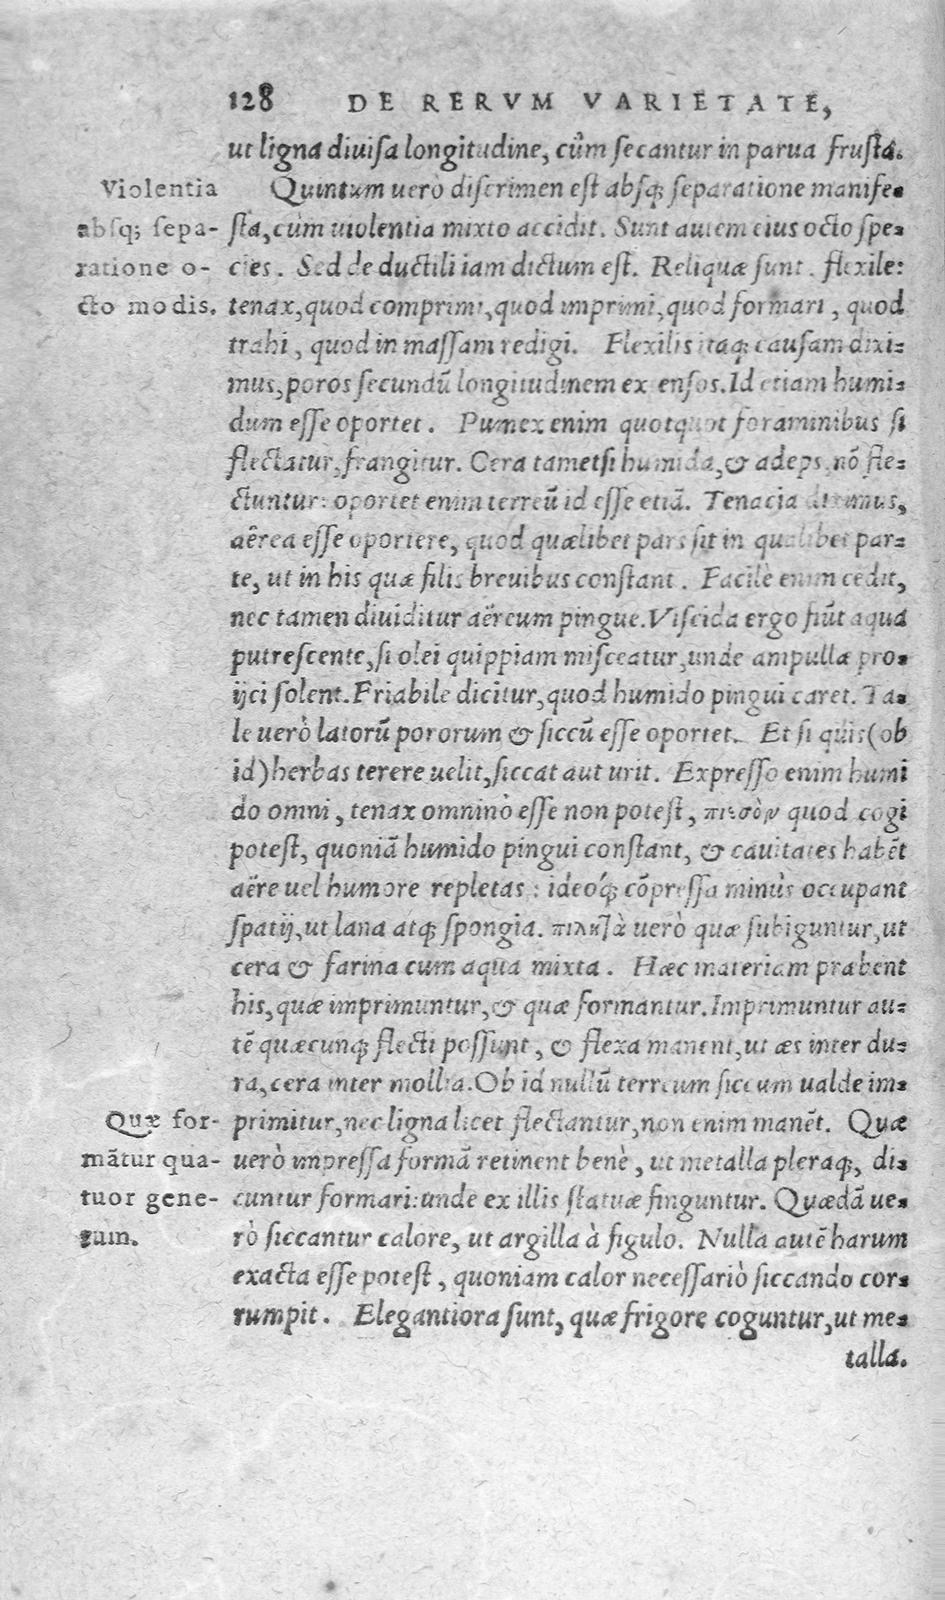 128 DE RERVM VARIETATE,
ut ligna diuisa longitudine, cùm secantur in parua frusta.
Violentia
absq; sepa-
ratione o-
cto modis.
Quintum uerò discrimen est absq; separatione manife-
sta, cùm uiolentia mixto accidit. Sunt autem eius octo spe-
cies. Sed de ductili iam dictum est. Reliquæ sunt. flexile:
tenax, quod comprimi, quod imprimi, quod formari, quod
trahi, quod in massam redigi. Flexilis itaq; causam dixi-
mus, poros secundū longitudinem ex ensos. Id etiam humi-
dum esse oportet. Pumex enim quotquot foraminibus si
flectatur, frangitur. Cera tametsi humida, & adeps, nō fle-
ctuntur: oportet enim terreū id esse etiā. Tenacia diximus,
aërea esse oportere, quod quælibet pars sit in qualibet par-
te, ut in his quæ filis breuibus constant. Facilè enim cedit,
nec tamen diuiditur aëreum pingue. Viscida ergo fiūt aqua
putrescente, si olei quippiam misceatur, unde ampullæ pro-
ijci solent. Friabile dicitur, quod humido pingui caret. Ta-
le uerò latorū pororum & siccū esse oportet. Et si quis (ob
id) herbas terere uelit, siccat aut urit. Expresso enim humi
do omni, tenax omninò esse non potest, πιεσὸν quod cogi
potest, quoniā humido pingui constant, & cauitates habēt
aëre uel humore repletas: ideóq; cōpressa minùs occupant
spatij, ut lana atq; spongia. πιλητὰ uerò quæ subiguntur, ut
cera & farina cum aqua mixta. Hæc materiam præbent
his, quæ imprimuntur, & quæ formantur. Imprimuntur au-
tē quæcunq; flecti possunt, & flexa manent, ut æs inter du-
ra, cera inter mollia. Ob id nullū terreum siccum ualde im-
primitur, nec ligna licet flectantur, non enim manēt. Quæ
uerò impressa formā retinent benè, ut metalla pleraq;, di-
cuntur formari: unde ex illis statuæ finguntur. Quædā ue-
rò siccantur calore, ut argilla à figulo. Nulla autē harum
exacta esse potest, quoniam calor necessariò siccando cor-
rumpit. Elegantiora sunt, quæ frigore coguntur, ut me-
talla.
Quæ for-
mātur qua-
tuor gene-
rum.